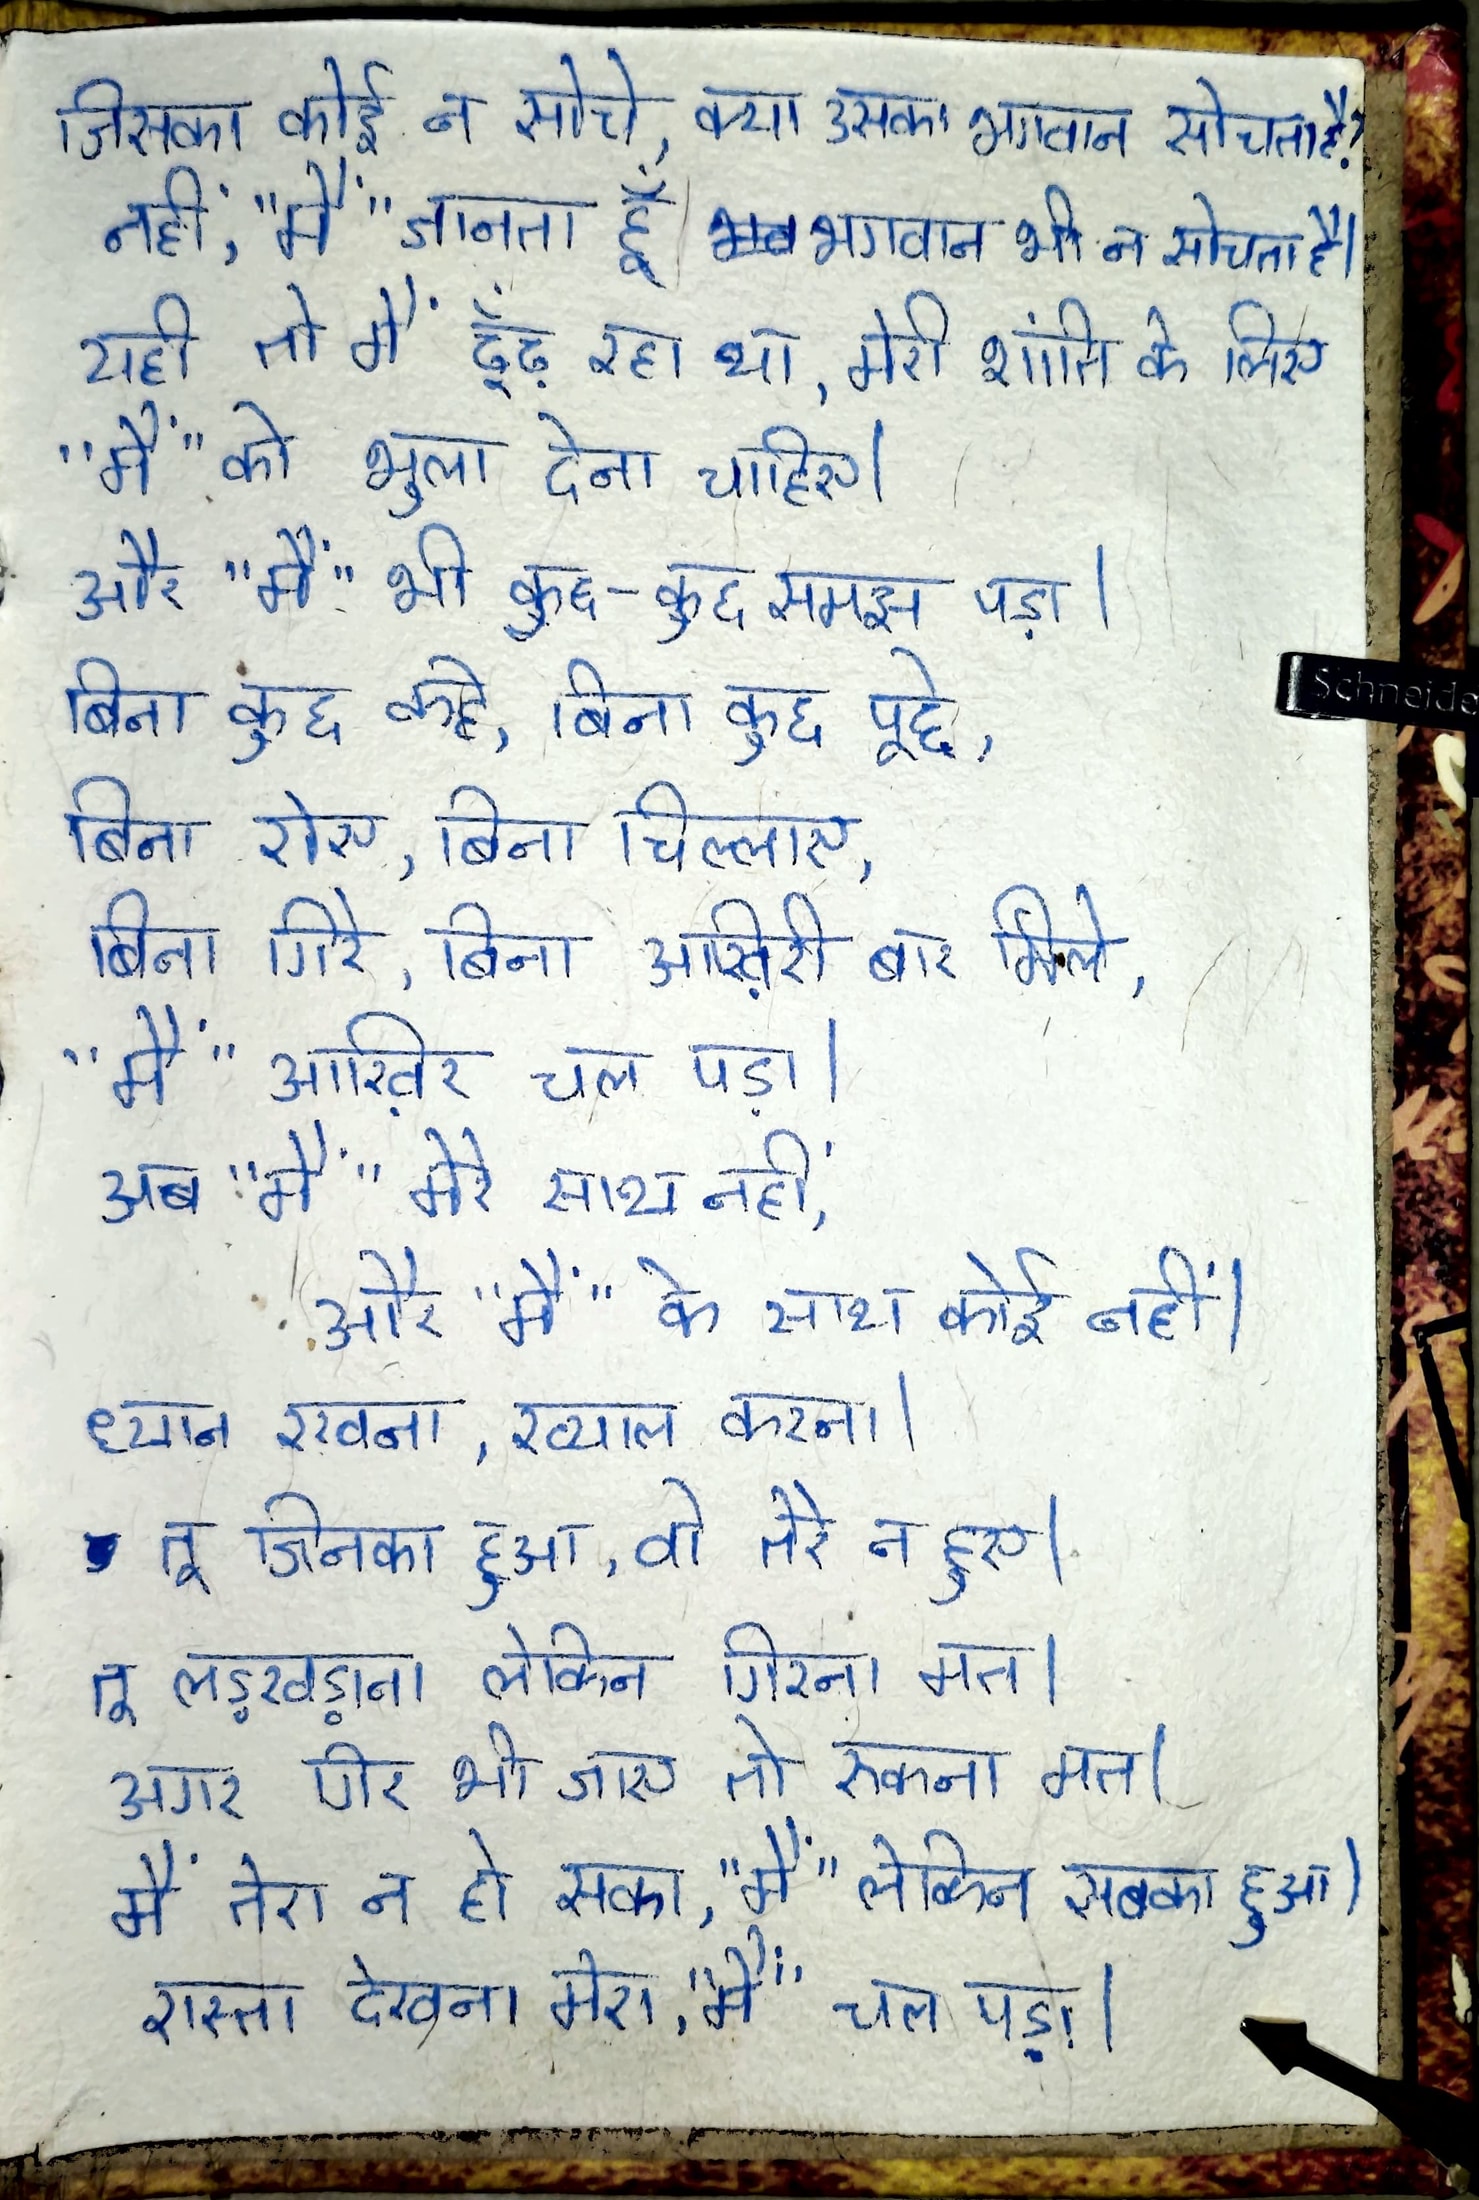 जिसका कोई न सोचे, क्या उसका भगवान सोचता है?
नहीं, "मैं" जानता हूँ। भगवान भी न सोचता है।
यही तो मैं ढूँढ़ रहा था, मेरी शांति के लिए
"मैं" को भुला देना चाहिए।
और "मैं" भी कुछ-कुछ समझ पड़ा।
बिना कुछ कहे, बिना कुछ पूछे,
बिना रोए, बिना चिल्लाए,
बिना गिरे, बिना आख़िरी बार मिले,
"मैं" आख़िर चल पड़ा।
अब "मैं" मेरे साथ नहीं,
और "मैं" के साथ कोई नहीं।
ध्यान रखना, ख्याल करना।
तू जिनका हुआ, वो तेरे न हुए।
तू लड़खड़ाना लेकिन गिरना मत।
अगर गिर भी जाए तो रुकना मत।
मैं तेरा न हो सका, "मैं" लेकिन सबका हुआ।
रास्ता देखना मेरा, "मैं" चल पड़ा।
Schneide